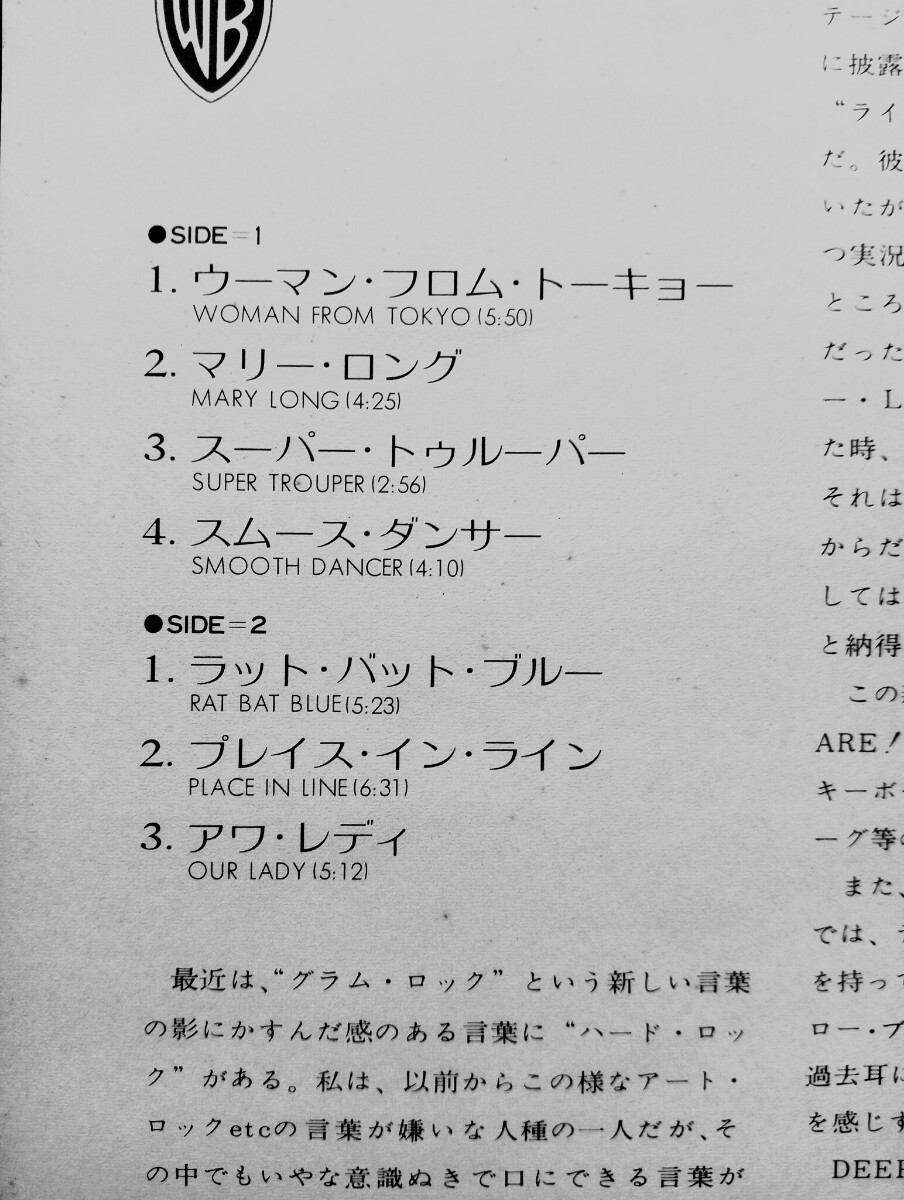 WB
●SIDE=1
1. ウーマン・フロム・トーキョー
WOMAN FROM TOKYO (5:50)
2. マリー・ロング
MARY LONG (4:25)
3. スーパー・トゥルーパー
SUPER TROUPER (2:56)
4. スムース・ダンサー
SMOOTH DANCER (4:10)
●SIDE=2
1. ラット・バット・ブルー
RAT BAT BLUE (5:23)
2. プレイス・イン・ライン
PLACE IN LINE (6:31)
3. アワ・レディ
OUR LADY (5:12)
最近は、“グラム・ロック”という新しい言葉
の影にかすんだ感のある言葉に“ハード・ロッ
ク”がある。私は、以前からこの様なアート・
ロックetcの言葉が嫌いな人種の一人だが、そ
の中でもいやな意識ぬきで口にできる言葉が
テージ
に披露
“ライ
だ。彼
いたが
つ実況
ところ
だった
ー・L
た時、
それは
からだ
しては
と納得
この
ARE!
キーボー
ーグ等の
また、
では、
を持って
ロー・ブ
過去耳に
を感じす
DEEP